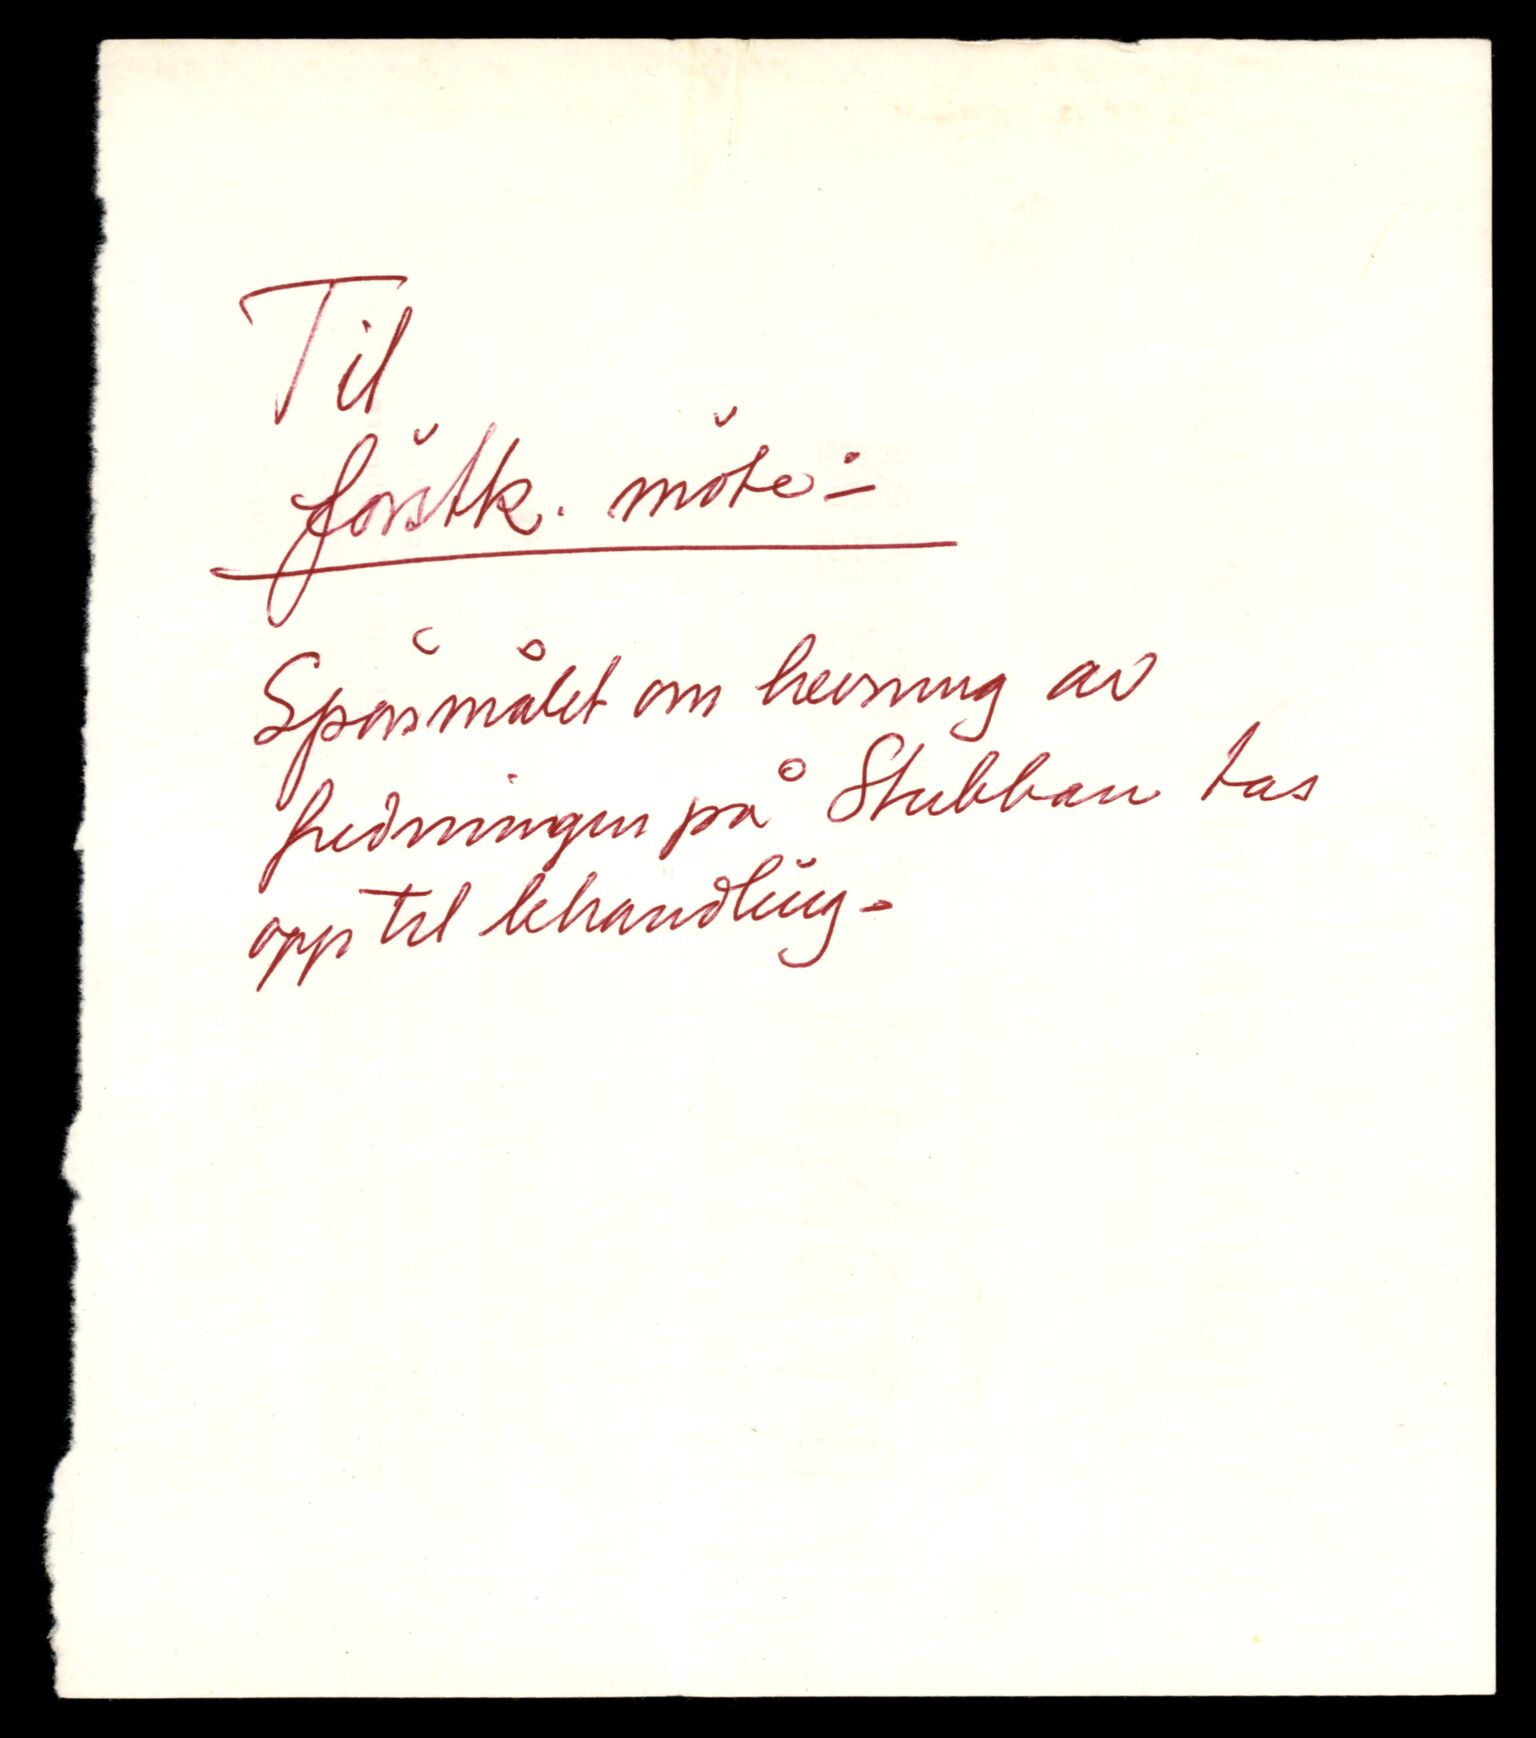 Til
førstk. møte:
Spørsmålet om hevning av
fredningen på Stubban tas
opp til behandling.